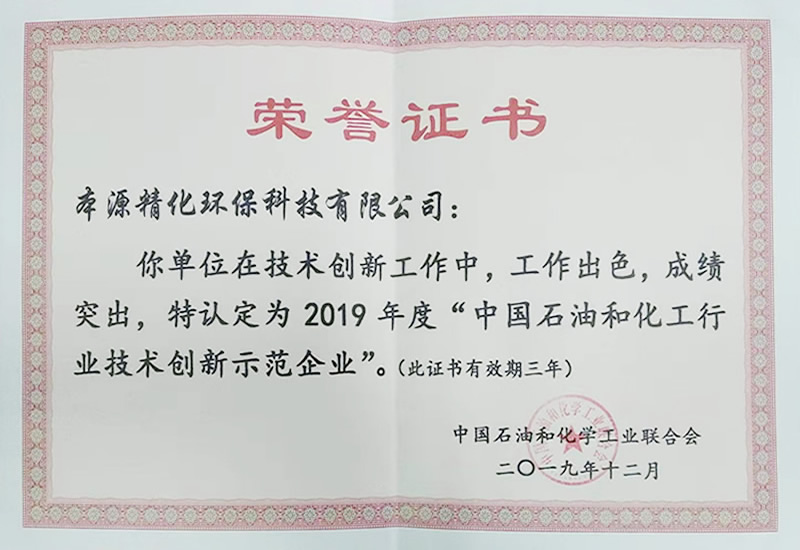 荣誉证书
本源精化环保科技有限公司：
你单位在技术创新工作中，工作出色，成绩
突出，特认定为 2019 年度“中国石油和化工行
业技术创新示范企业”。（此证书有效期三年）
中国石油和化学工业联合会
二〇一九年十二月